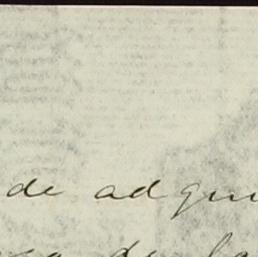 de adqui
de la